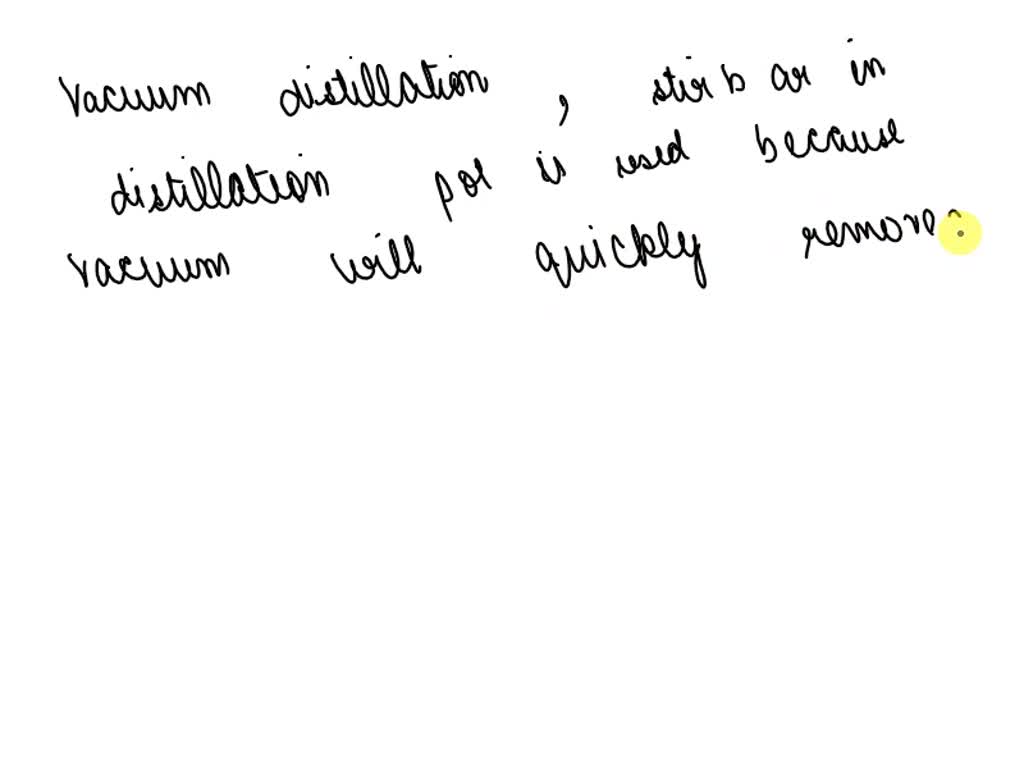 vacuum distillation, stir bar in
distillation pot is used because
vacuum will quickly remove